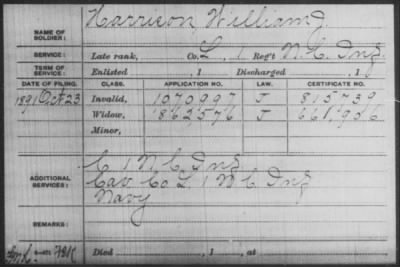 NAME OF SOLDIER: Harrison, William J.
SERVICE: Late rank, Co. L, 1 Reg't N.C. Inf.
TERM OF SERVICE: Enlisted , 1 Discharged , 1
DATE OF FILING. CLASS. APPLICATION NO. LAW. CERTIFICATE NO.
1891 Oct. 23 Invalid, 1070997 J 815739
Widow, 862576 J 661,906
Minor,
ADDITIONAL SERVICES: C 1 N C Inf
Cav Co L 1 N C Inf
Navy
REMARKS:
Died , 1 , at